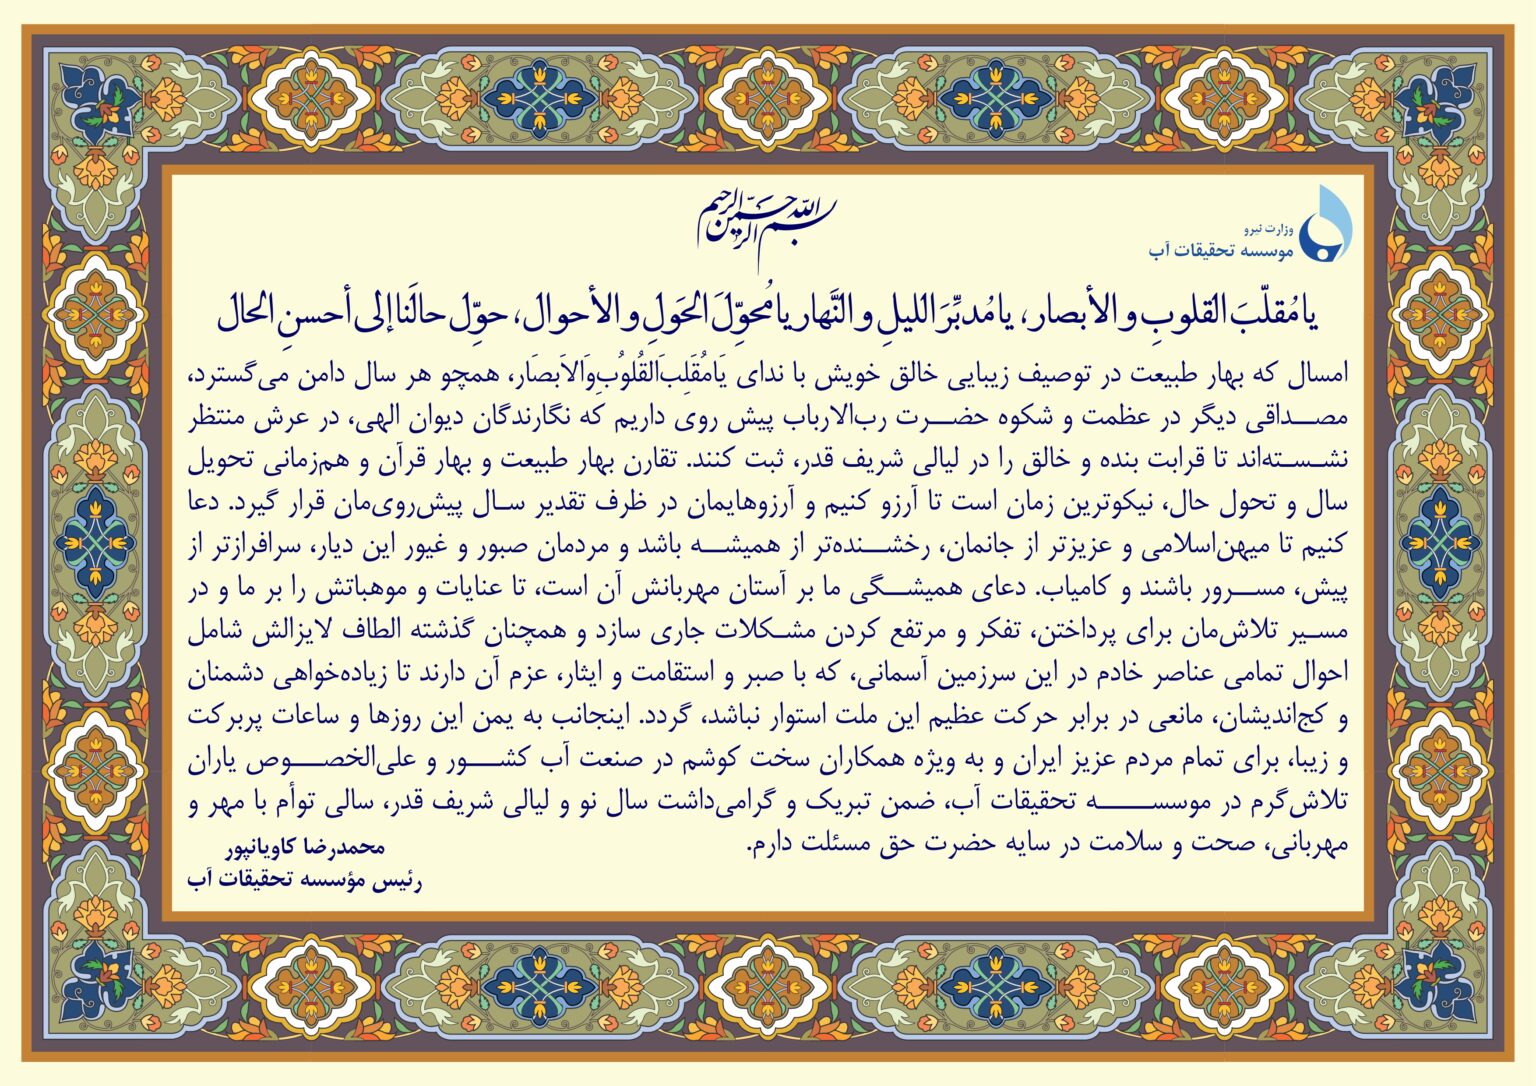 بسم الله الرحمن الرحیم
وزارت نیرو
موسسه تحقیقات آب
یا مُقلّبَ القلوبِ و الأبصار، یا مُدبِّرَ اللیلِ و النَّهار یا مُحوِّلَ الحَولِ و الأحوال، حوِّل حالَنا إلی أحسنِ الحال
امسال که بهار طبیعت در توصیف زیبایی خالق خویش با ندای یَامُقَلِبَ‌القُلوُبِ‌وَالاَبصَار، همچو هر سال دامن می‌گسترد،
مصداقی دیگر در عظمت و شکوه حضرت رب‌الارباب پیش روی داریم که نگارندگان دیوان الهی، در عرش منتظر
نشسته‌اند تا قرابت بنده و خالق را در لیالی شریف قدر، ثبت کنند. تقارن بهار طبیعت و بهار قرآن و هم‌زمانی تحویل
سال و تحول حال، نیکوترین زمان است تا آرزو کنیم و آرزوهایمان در ظرف تقدیر سال پیش‌روی‌مان قرار گیرد. دعا
کنیم تا میهن‌اسلامی و عزیزتر از جانمان، رخشنده‌تر از همیشه باشد و مردمان صبور و غیور این دیار، سرافرازتر از
پیش، مسرور باشند و کامیاب. دعای همیشگی ما بر آستان مهربانش آن است، تا عنایات و موهباتش را بر ما و در
مسیر تلاش‌مان برای پرداختن، تفکر و مرتفع کردن مشکلات جاری سازد و همچنان گذشته الطاف لایزالش شامل
احوال تمامی عناصر خادم در این سرزمین آسمانی، که با صبر و استقامت و ایثار، عزم آن دارند تا زیاده‌خواهی دشمنان
و کج‌اندیشان، مانعی در برابر حرکت عظیم این ملت استوار نباشد، گردد. اینجانب به یمن این روزها و ساعات پربرکت
و زیبا، برای تمام مردم عزیز ایران و به ویژه همکاران سخت کوشم در صنعت آب کشور و علی‌الخصوص یاران
تلاش‌گرم در موسسه تحقیقات آب، ضمن تبریک و گرامی‌داشت سال نو و لیالی شریف قدر، سالی توأم با مهر و
مهربانی، صحت و سلامت در سایه حضرت حق مسئلت دارم.
محمدرضا کاویانپور
رئیس مؤسسه تحقیقات آب